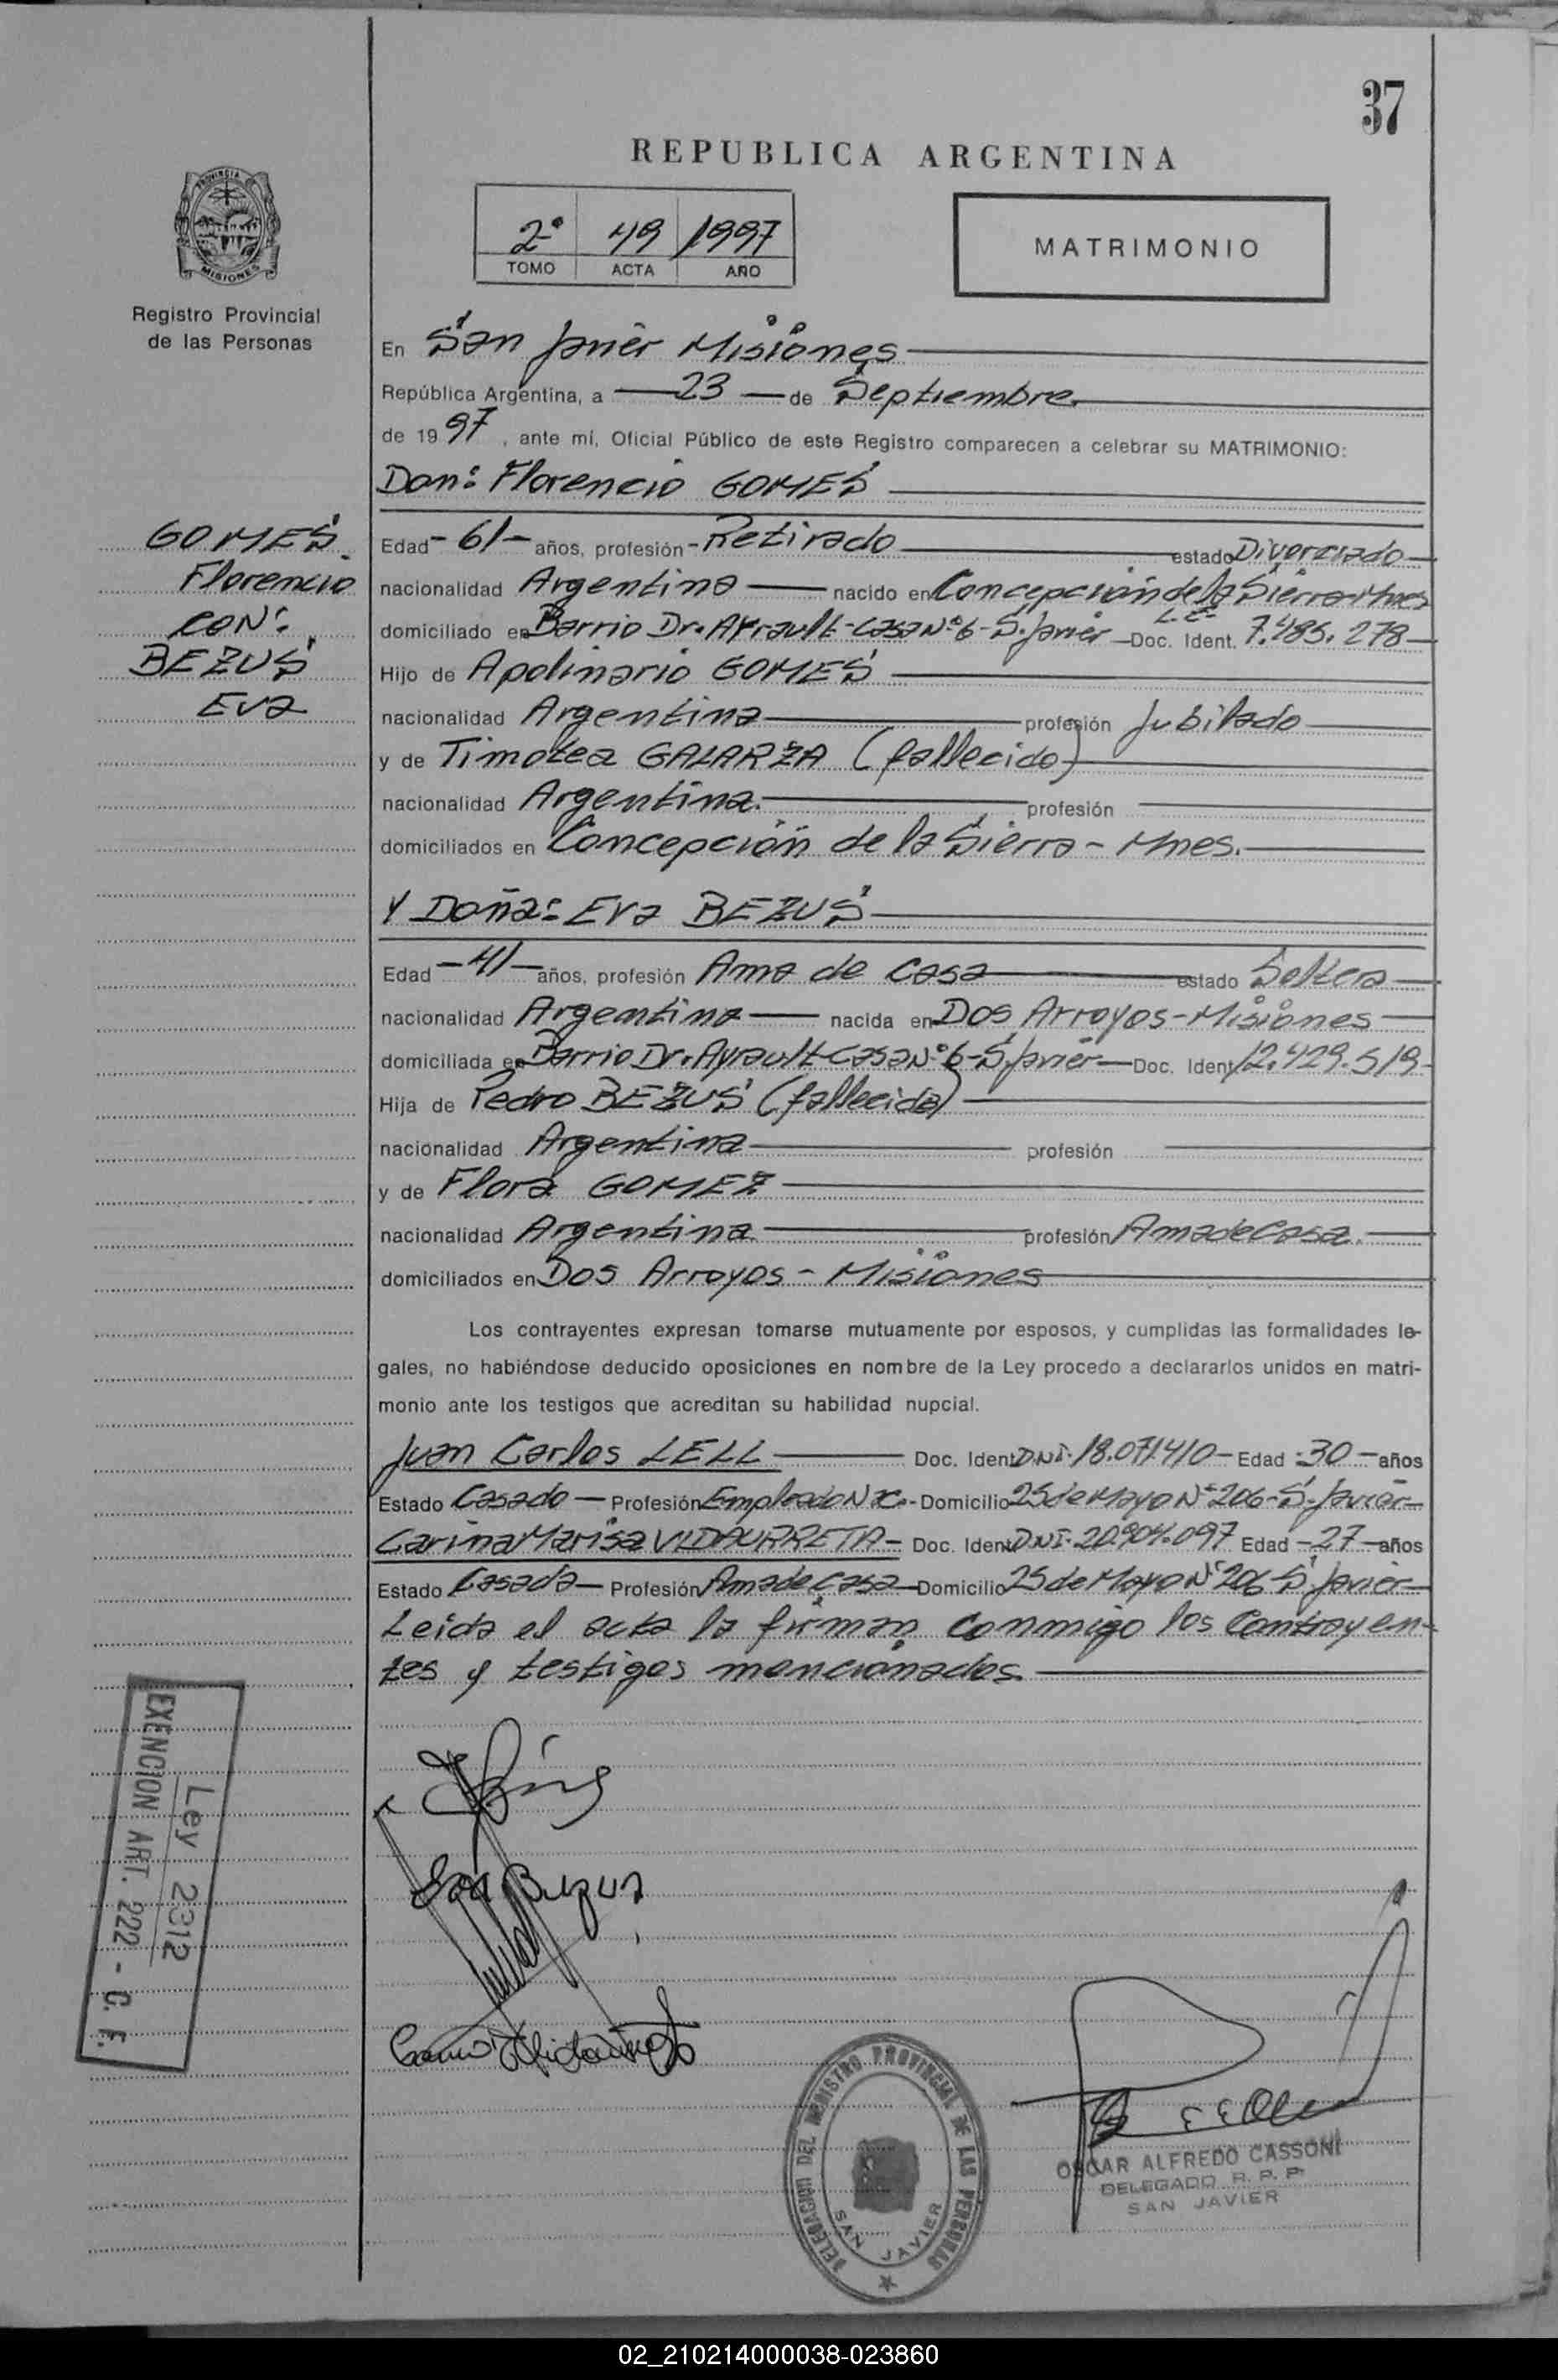 37
REPUBLICA ARGENTINA
2º 49 1997
TOMO ACTA AÑO
MATRIMONIO
PROVINCIA DE
MISIONES
Registro Provincial
de las Personas
En San Javier Misiones
República Argentina, a 23 de Septiembre
de 1997, ante mí, Oficial Público de este Registro comparecen a celebrar su MATRIMONIO:
Don: Florencio GOMES
GOMES
Florencio
CON:
BEZUS
Eva
Edad - 61 - años, profesión - Retirado estado Divorciado
nacionalidad Argentina nacido en Concepción de la Sierra-Mnes
domiciliado en Barrio Dr. Ayrault-Casa Nº 6-S. Javier Doc. Ident. L.E. 7.485.278
Hijo de Apolinario GOMES
nacionalidad Argentina profesión Jubilado
y de Timotea GALARZA (fallecida)
nacionalidad Argentina. profesión
domiciliados en Concepción de la Sierra - Mnes.
Y Doña: Eva BEZUS
Edad - 41 - años, profesión Ama de casa estado Soltera
nacionalidad Argentina nacida en Dos Arroyos-Misiones
domiciliada en Barrio Dr. Ayrault-Casa Nº 6-S. Javier Doc. Ident. 12.429.519
Hija de Pedro BEZUS (fallecido)
nacionalidad Argentina profesión
y de Flora GOMEZ
nacionalidad Argentina profesión Ama de Casa.
domiciliados en Dos Arroyos - Misiones
Los contrayentes expresan tomarse mutuamente por esposos, y cumplidas las formalidades le-
gales, no habiéndose deducido oposiciones en nombre de la Ley procedo a declararlos unidos en matri-
monio ante los testigos que acreditan su habilidad nupcial.
Juan Carlos LELL Doc. Ident. D.N.I. 18.071410 - Edad - 30 - años
Estado Casado - Profesión Empleado - Domicilio 25 de Mayo Nº 206-S. Javier
Carina Marisa VIDAURRETA - Doc. Ident. D.N.I. 20.904.097 Edad - 27 - años
Estado Casada - Profesión Ama de Casa - Domicilio 25 de Mayo Nº 206 S. Javier
Leida el acta la firman conmigo los Contrayen-
tes y testigos mencionados
Ley 2312
EXENCION ART. 222 - C. F.
Eva Bezus
DELEGACION DEL REGISTRO PROVINCIAL DE LAS PERSONAS
SAN JAVIER
OSCAR ALFREDO CASSONI
DELEGADO R. P. P
SAN JAVIER
02_210214000038-023860